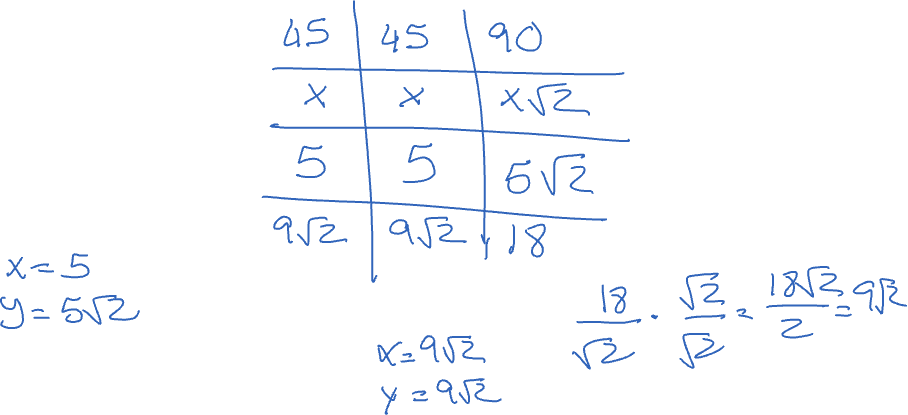 45 45 90
x x x√2
5 5 5√2
9√2 9√2 18
x=5
y=5√2
18/√2 · √2/√2 = 18√2/2 = 9√2
x=9√2
y=9√2